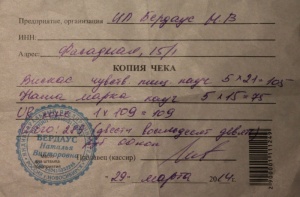 Предприятие, организация ИП Бердаус Н.В
ИНН:
Адрес: Фасадная, 15/1
КОПИЯ ЧЕКА
Вискас чувств пищ пауч 5 х 21 = 105
Наша марка пауч 5 х 15 = 75
1 х 109 = 109
Всего: 289 (двести восемьдесят девять)
руб 00 коп
БЕРДАУС
Наталья
Викторовна
Продавец (кассир)
"29" марта 2014г.